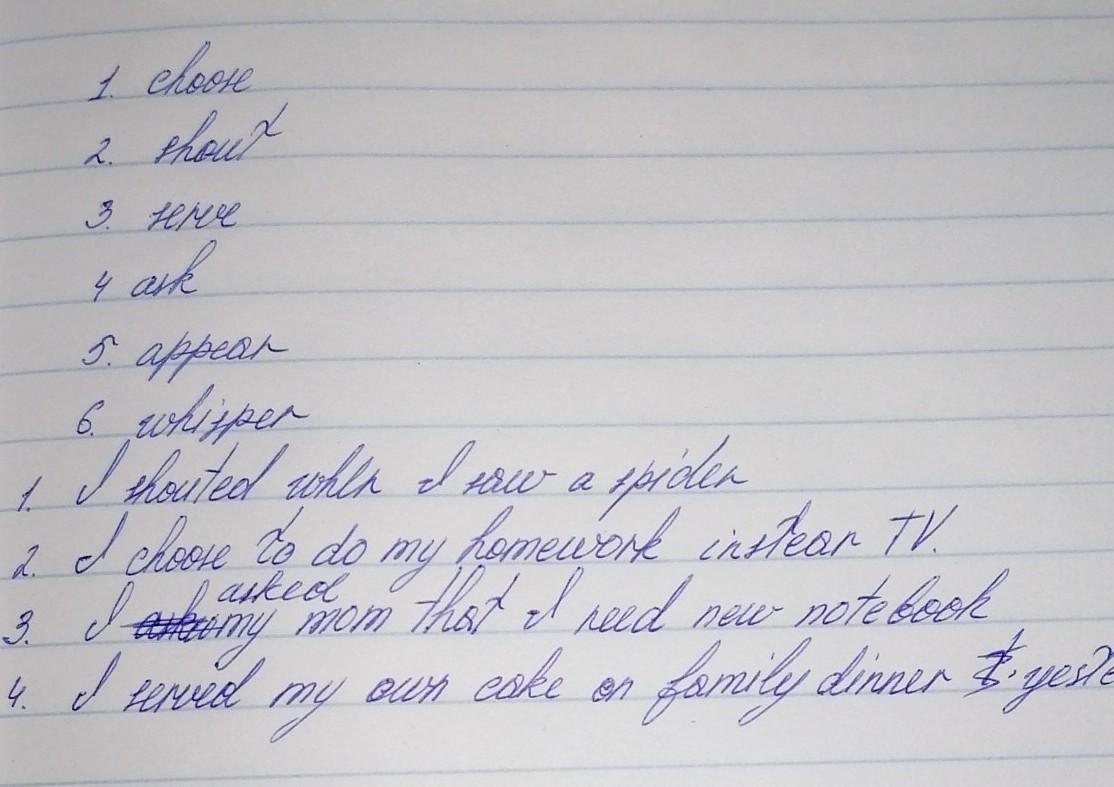 1. choose
2. shout
3. serve
4 ask
5. appear
6. whisper
1. I shouted when I saw a spider
2. I choose to do my homework instear TV.
asked
3. I my mom that I need new notebook
4. I served my own cake on family dinner